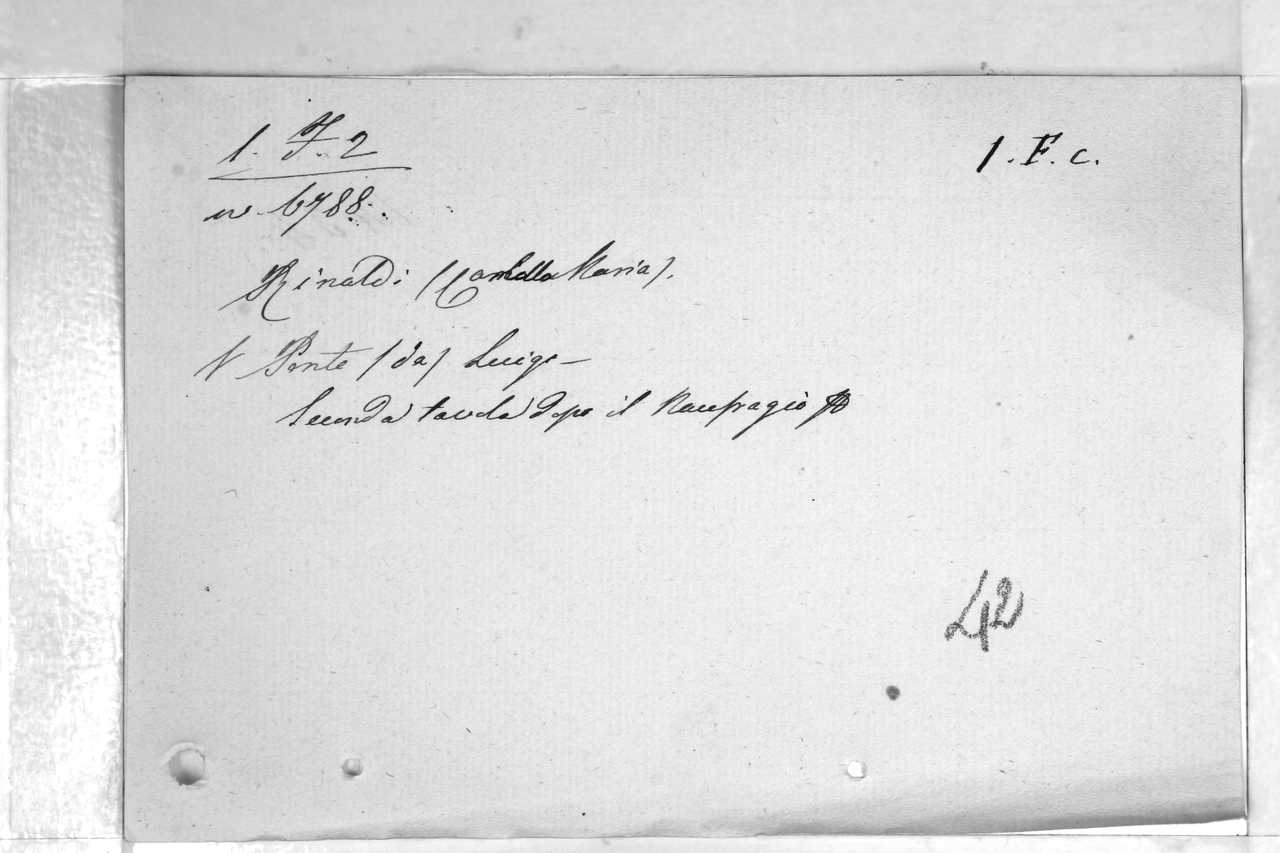 1. F. 2
1. F. c.
n. 6788.
Rinaldi (Camilla Maria).
V Ponte (da) Luigi -
Seconda tavola dopo il Naufragio
42